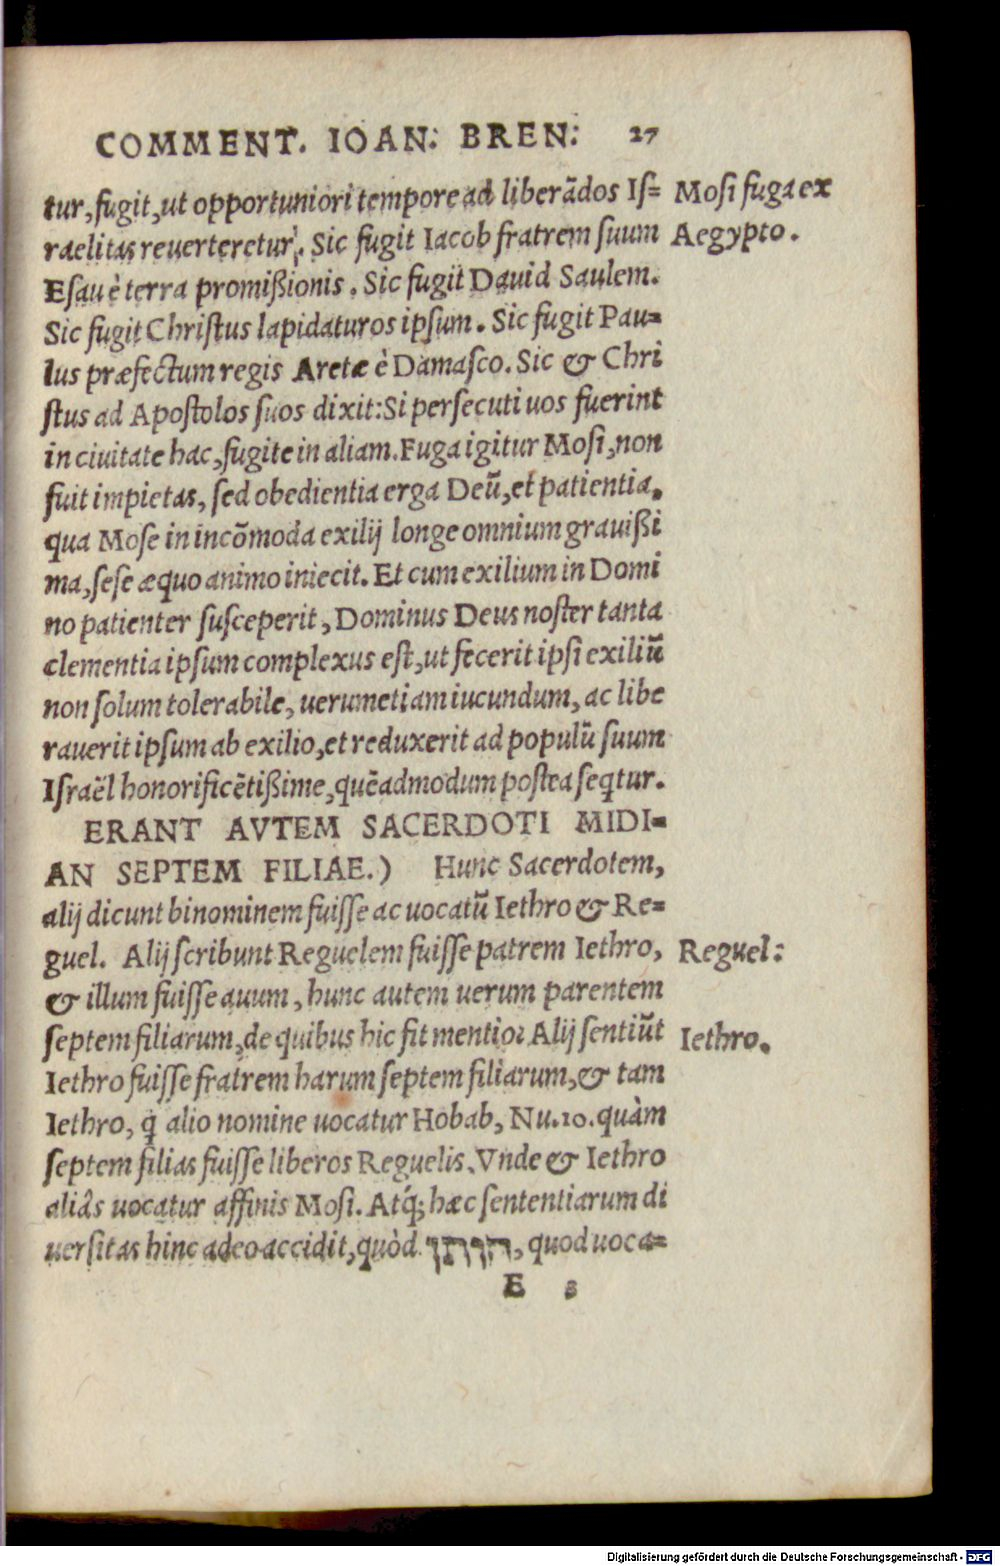 COMMENT. IOAN: BREN: 27
tur, fugit, ut opportuniori tempore ad liberãdos Iſ=
Moſi fuga ex
raelitas reuerteretur. Sic fugit Iacob fratrem ſuum
Aegypto.
Eſau è terra promißionis. Sic fugit Dauid Saulem.
Sic fugit Chriſtus lapidaturos ipſum. Sic fugit Pau=
lus præfectum regis Aretæ è Damaſco. Sic & Chri
ſtus ad Apoſtolos ſuos dixit: Si perſecuti uos fuerint
in ciuitate hac, fugite in aliam. Fuga igitur Moſi, non
fuit impietas, ſed obedientia erga Deũ, et patientia,
qua Moſe in incõmoda exilij longe omnium grauißi
ma, ſeſe æquo animo iniecit. Et cum exilium in Domi
no patienter ſuſceperit, Dominus Deus noſter tanta
clementia ipſum complexus eſt, ut fecerit ipſi exiliũ
non ſolum tolerabile, uerumetiam iucundum, ac libe
rauerit ipſum ab exilio, et reduxerit ad populũ ſuum
Iſraël honorificẽtißime, quẽadmodum poſtea ſeqtur.
ERANT AVTEM SACERDOTI MIDI=
AN SEPTEM FILIAE.) Hunc Sacerdotem,
alij dicunt binominem fuiſſe ac uocatũ Iethro & Re=
guel. Alij ſcribunt Reguelem fuiſſe patrem Iethro,
Reguel:
& illum fuiſſe auum, hunc autem uerum parentem
ſeptem filiarum, de quibus hic fit mentio: Alij ſentiũt
Iethro.
Iethro fuiſſe fratrem harum ſeptem filiarum, & tam
Iethro, q̃ alio nomine uocatur Hobab, Nu. 10. quàm
ſeptem filias fuiſſe liberos Reguelis. Vnde & Iethro
aliâs uocatur affinis Moſi. Atq́; hæc ſententiarum di
uerſitas hinc adeo accidit, quòd, quod uoca=
E